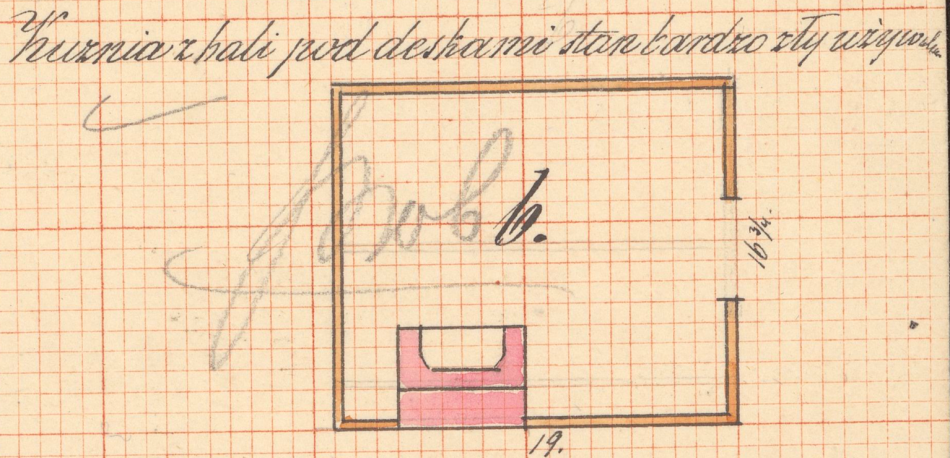 Kuznia z bali pod deskami stan bardzo zły używal
b.
16 3/4.
19.